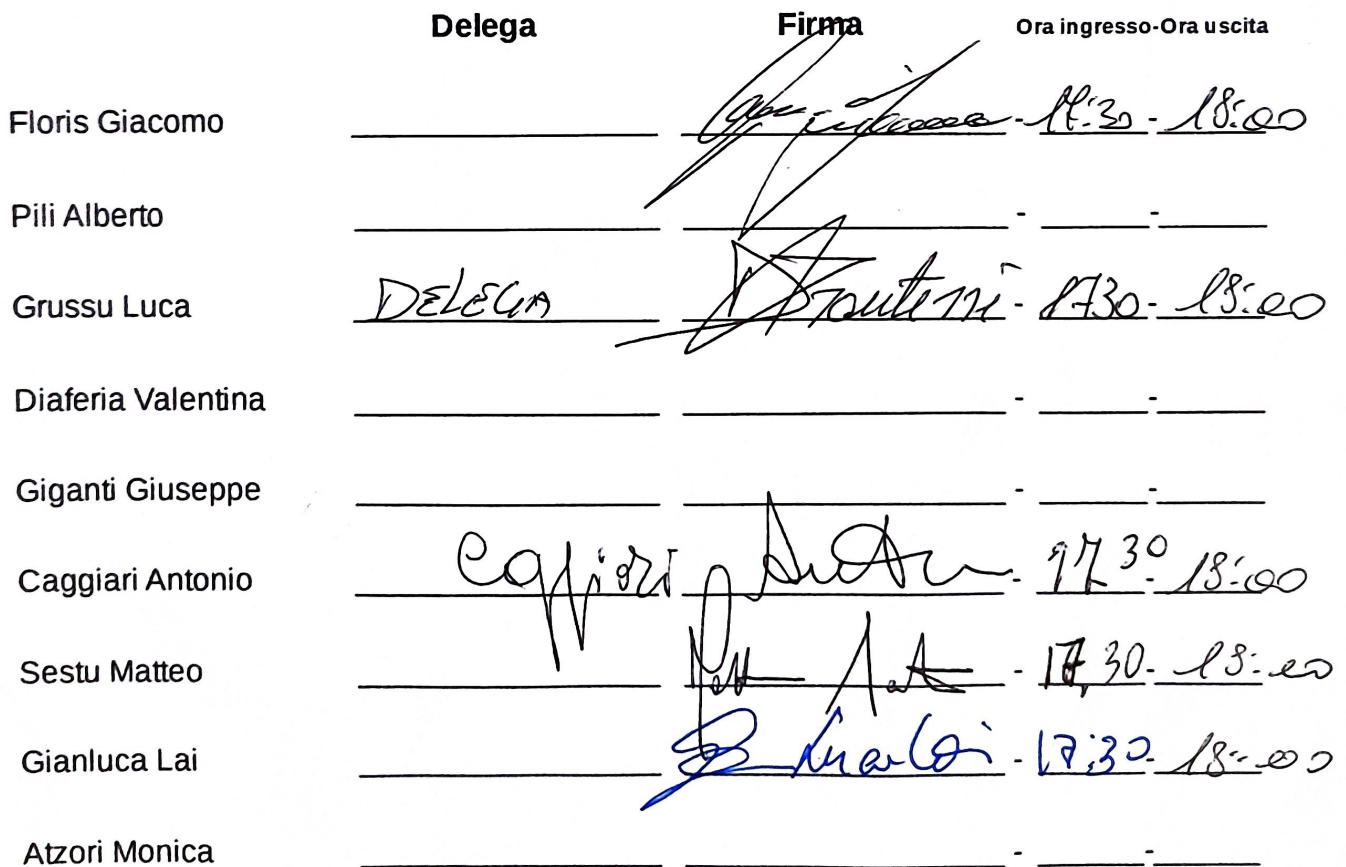 Delega Firma Ora ingresso-Ora uscita
Floris Giacomo - 17:30 - 18:00
Pili Alberto - -
Grussu Luca DELEGA - 1730 - 18:00
Diaferia Valentina - -
Giganti Giuseppe - -
Caggiari Antonio Caggiari - 17 30 - 18:00
Sestu Matteo - 17,30 - 18:00
Gianluca Lai - 17:30 - 18:00
Atzori Monica - -